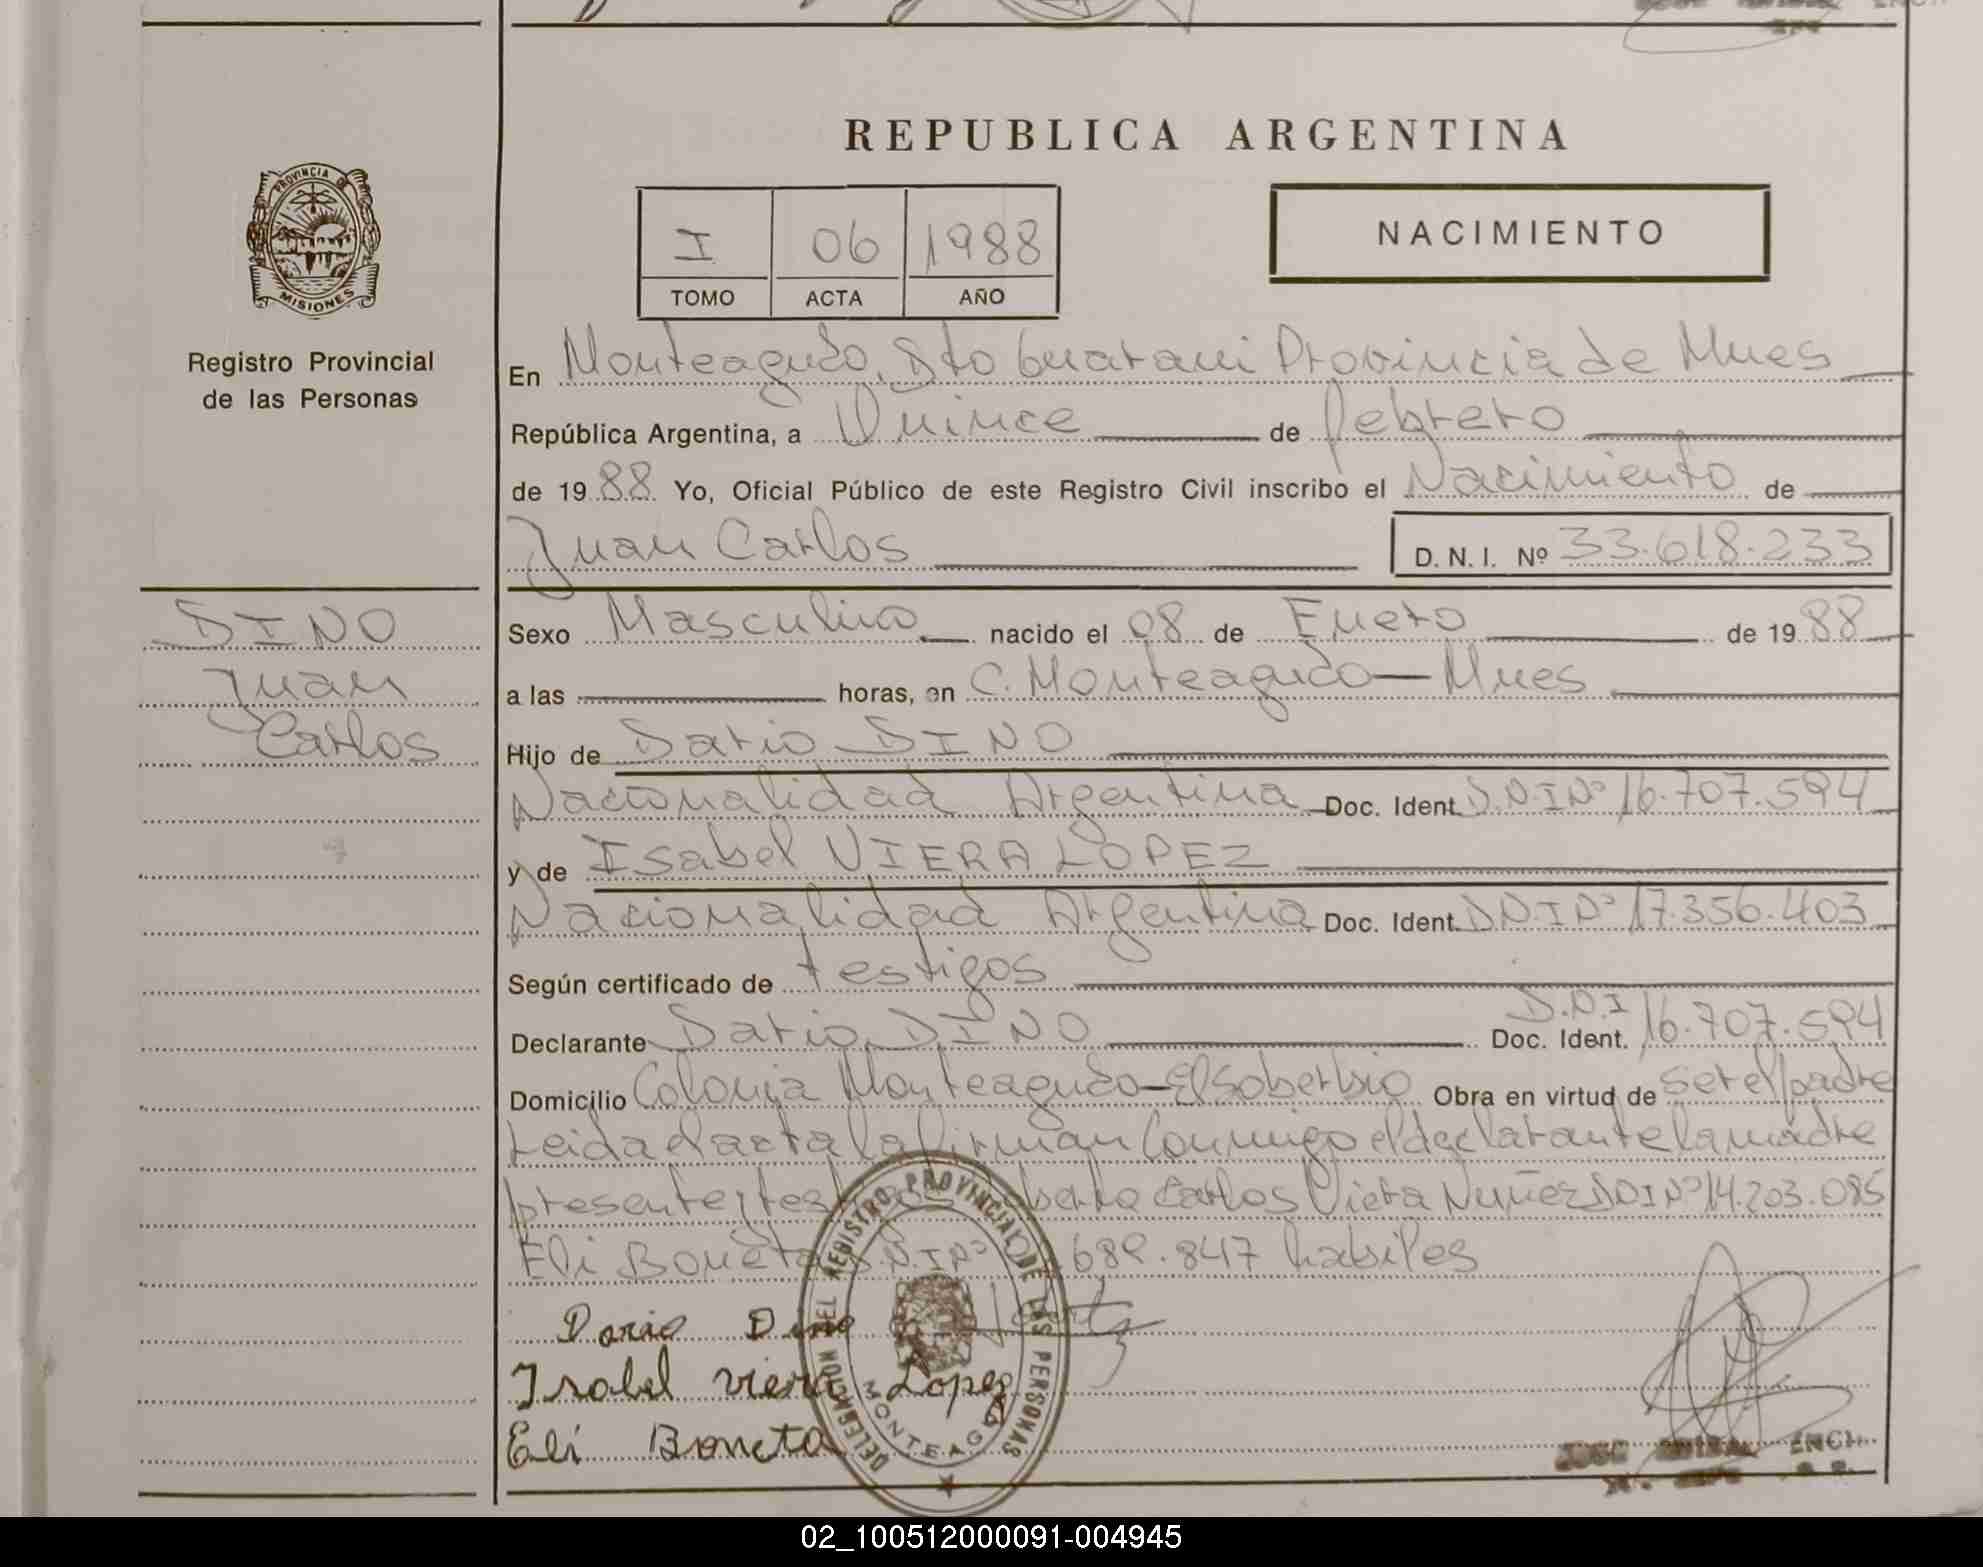 REPUBLICA ARGENTINA
PROVINCIA DE
MISIONES
Registro Provincial
de las Personas
I 06 1988
TOMO ACTA AÑO
NACIMIENTO
En Monteagudo, Dto Guarani Provincia de Mnes
República Argentina, a Quince de febrero
de 1988 Yo, Oficial Público de este Registro Civil inscribo el Nacimiento de
Juan Carlos D.N.I. Nº 33.618.233
DINO
Juan
Carlos
Sexo Masculino nacido el 08 de Enero de 1988
a las horas, en C. Monteagudo - Mnes
Hijo de Dario DINO
Nacionalidad Argentina Doc. Ident. D.N.I Nº 16.707.594
y de Isabel VIERA LOPEZ
Nacionalidad Argentina Doc. Ident. D.N.I Nº 17.356.403
Según certificado de testigos
Declarante Dario DINO Doc. Ident. D.N.I 16.707.594
Domicilio Colonia Monteagudo - El Soberbio Obra en virtud de ser el padre
Leida el acta la firman conmigo el declarante la madre
presente y Carlos Viera Nuñez D.N.I Nº 14.203.085
Eli Boneta D.N.I Nº 689.847 habiles
Dario Dino
Isabel viera Lopez
Eli Boneta
DELEGACION DEL REGISTRO PROVINCIAL DE LAS PERSONAS
MONTEAGUDO
02_100512000091-004945